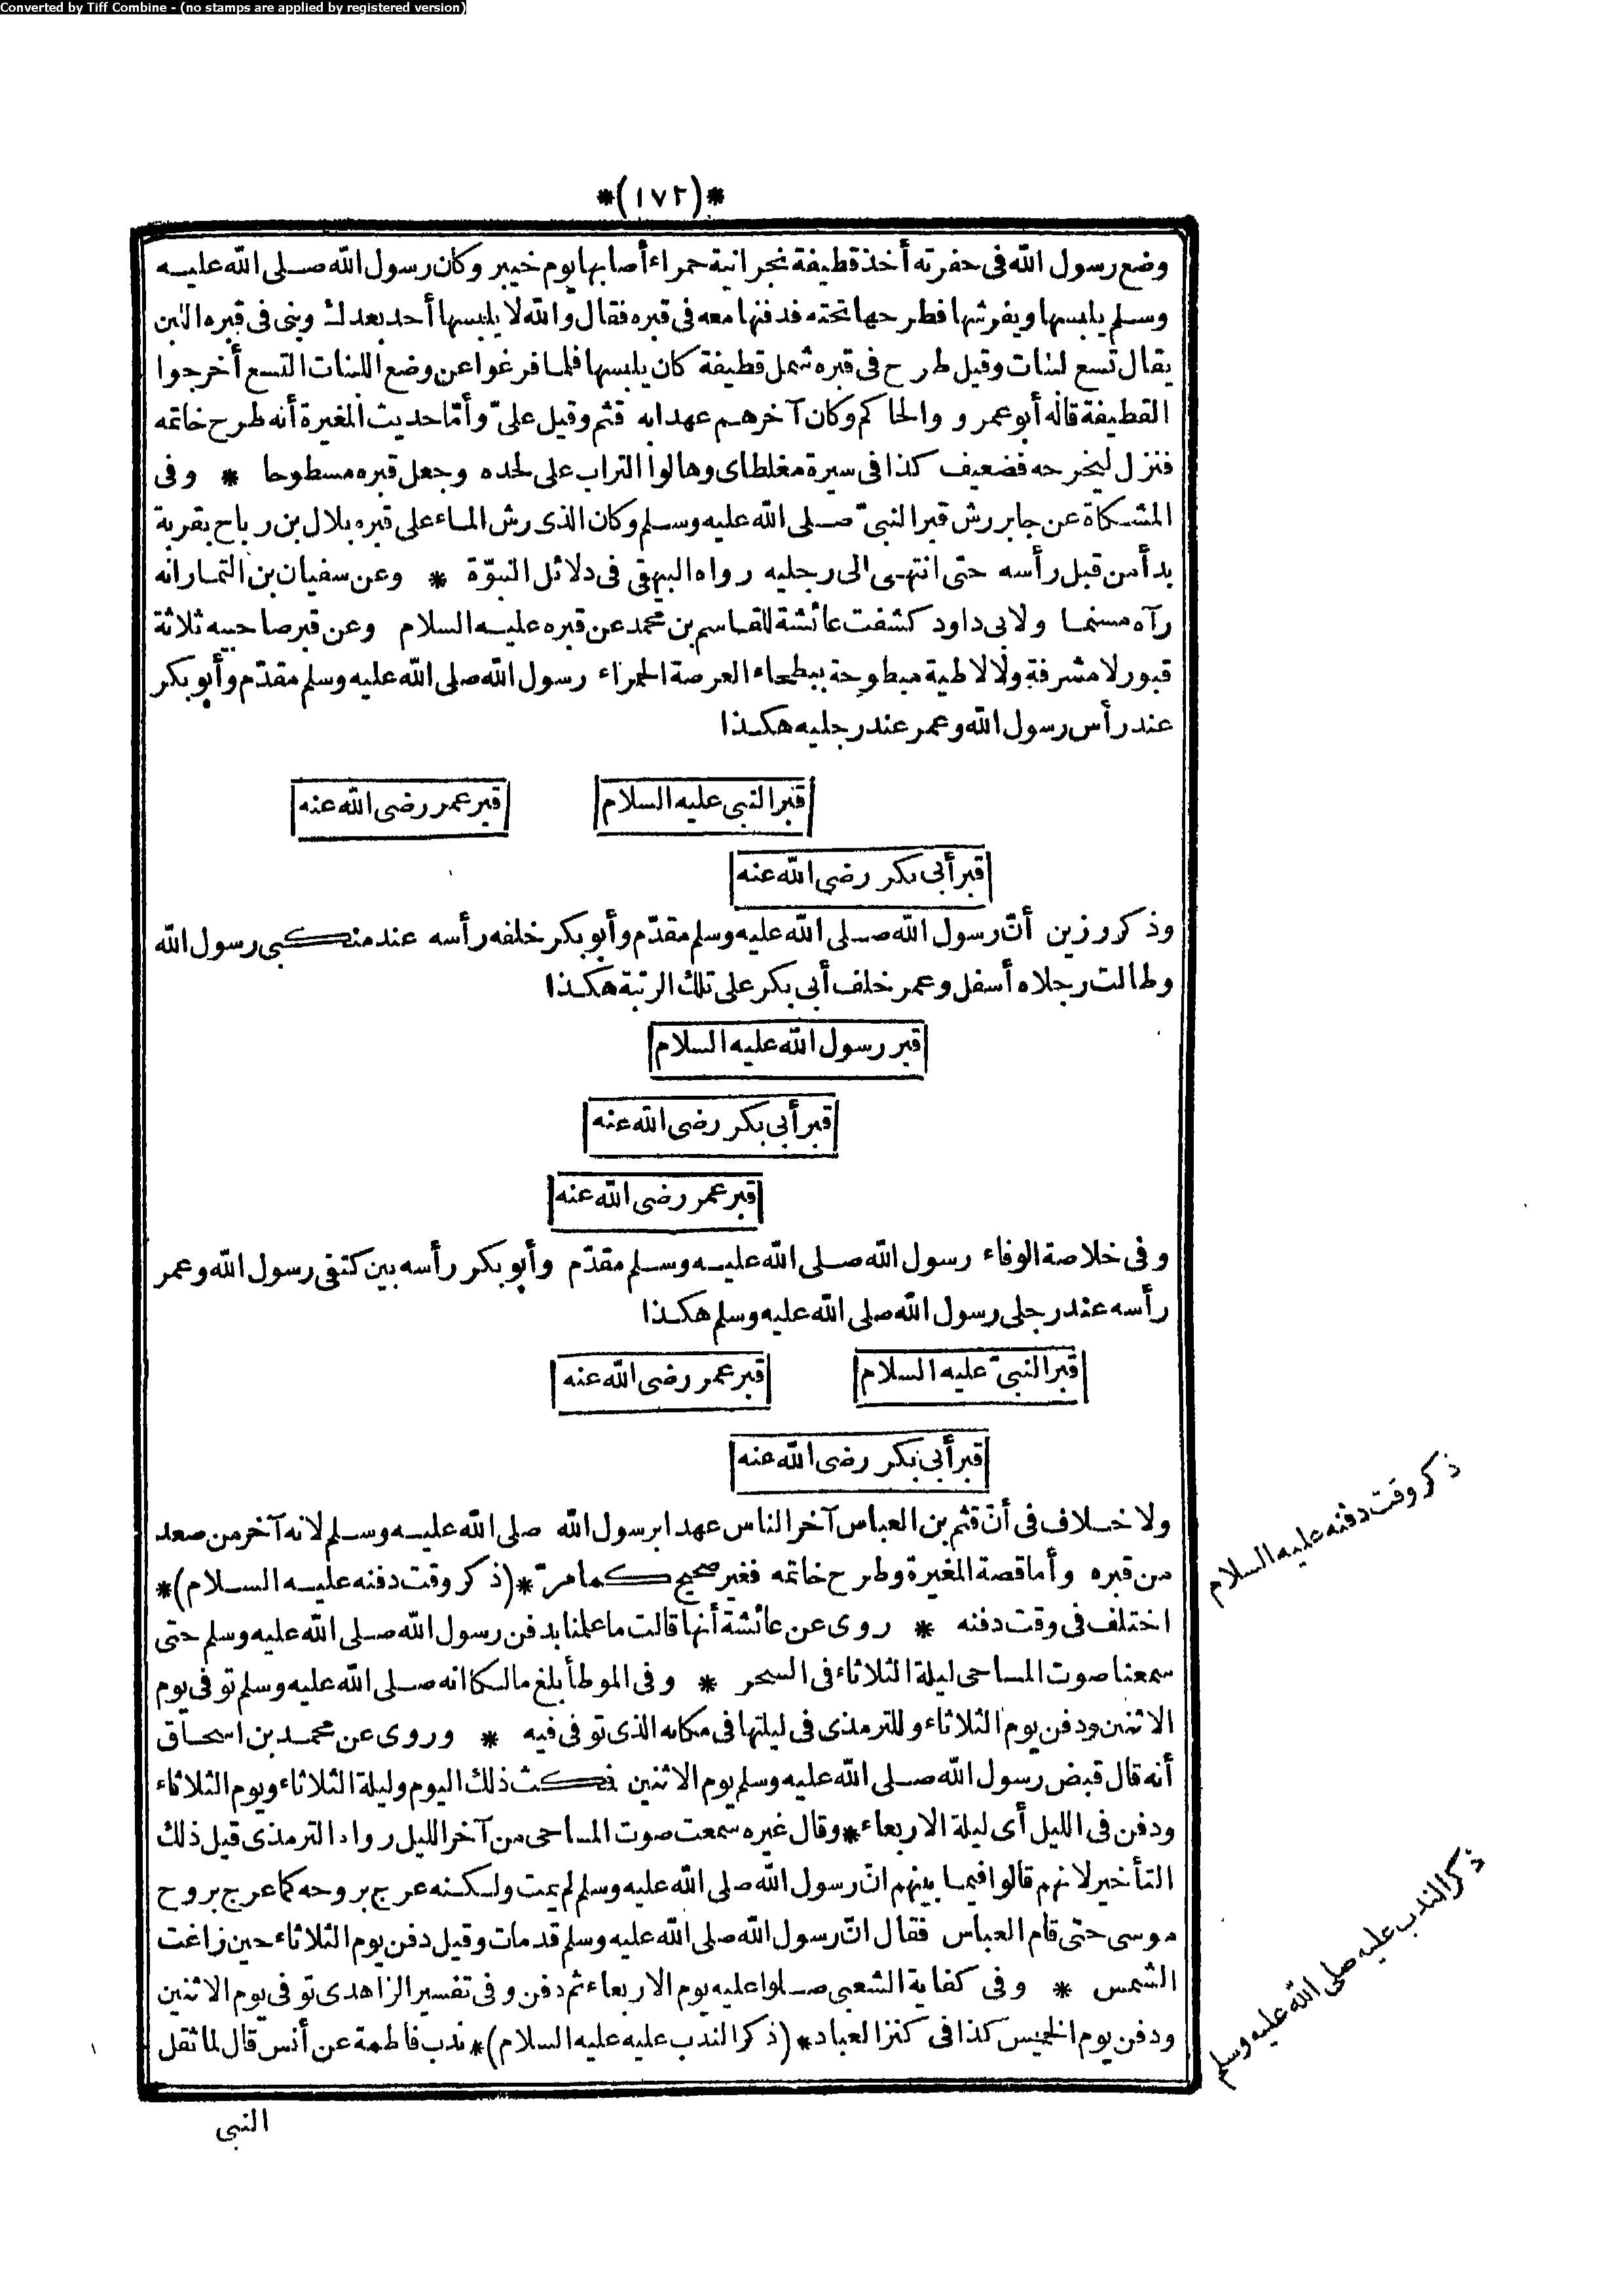 Converted by Tiff Combine - (no stamps are applied by registered version)
*(١٧٢)*
وضع رسول الله فى حفرته أخذ قطيفة نجرانية حمراء أصابها يوم خيبر وكان رسول الله صلى الله عليه
وسلم يلبسها ويفرشها فطرحها تحته فدفنها معه فى قبره فقال والله لا يلبسها أحد بعدك وبنى فى قبره اللبن
يقال تسع لبنات وقيل طرح فى قبره شمل قطيفة كان يلبسها فلما فرغوا عن وضع اللبنات التسع أخرجوا
القطيفة قاله أبو عمرو والحاكم وكان آخرهم عهدا به قثم وقيل علىّ وأمّا حديث المغيرة أنه طرح خاتمه
فنزل ليخرجه فضعيف كذا فى سيرة مغلطاى وهالوا التراب على لحده وجعل قبره مسطوحا * وفى
المشكاة عن جابر رش قبر النبىّ صلى الله عليه وسلم وكان الذى رش الماء على قبره بلال بن رباح بقربة
بدأ من قبل رأسه حتى انتهى الى رجليه رواه البيهقى فى دلائل النبوّة * وعن سفيان بن التمار انه
رآه مسنما ولابى داود كشفت عائشة للقاسم بن محمد عن قبره عليه السلام وعن قبر صاحبيه ثلاثة
قبور لا مشرفة ولا لاطية مبطوحة ببطحاء العرصة الحمراء رسول الله صلى الله عليه وسلم مقدّم وأبو بكر
عند رأس رسول الله وعمر عند رجليه هكذا
قبر النبى عليه السلام
قبر عمر رضى الله عنه
قبر أبى بكر رضى الله عنه
وذكر رزين أنّ رسول الله صلى الله عليه وسلم مقدّم وأبو بكر خلفه رأسه عند منكبى رسول الله
وطالت رجلاه أسفل وعمر خلف أبى بكر على تلك الرتبة هكذا
قبر رسول الله عليه السلام
قبر أبى بكر رضى الله عنه
قبر عمر رضى الله عنه
وفى خلاصة الوفاء رسول الله صلى الله عليه وسلم مقدّم وأبو بكر رأسه بين كتفى رسول الله وعمر
رأسه عند رجلى رسول الله صلى الله عليه وسلم هكذا
قبر النبىّ عليه السلام
قبر عمر رضى الله عنه
قبر أبى بكر رضى الله عنه
ولا خلاف فى أنّ قثم بن العباس آخر الناس عهدا برسول الله صلى الله عليه وسلم لانه آخر من صعد
من قبره وأما قصة المغيرة وطرح خاتمه فغير صحيح كما مرّ *(ذكر وقت دفنه عليه السلام)*
اختلف فى وقت دفنه * روى عن عائشة أنها قالت ما علمنا بدفن رسول الله صلى الله عليه وسلم حتى
سمعنا صوت المساحى ليلة الثلاثاء فى السحر * وفى الموطأ بلغ مالكا انه صلى الله عليه وسلم توفى يوم
الاثنين ودفن يوم الثلاثاء وللترمذى فى ليلتها فى مكانه الذى توفى فيه * وروى عن محمد بن اسحاق
أنه قال قبض رسول الله صلى الله عليه وسلم يوم الاثنين فمكث ذلك اليوم وليلة الثلاثاء ويوم الثلاثاء
ودفن فى الليل أى ليلة الاربعاء * وقال غيره سمعت صوت المساحى من آخر الليل رواه الترمذى قيل ذلك
التأخير لانهم قالوا فيما بينهم انّ رسول الله صلى الله عليه وسلم لم يمت ولكنه عرج بروحه كما عرج بروح
موسى حتى قام العباس فقال انّ رسول الله صلى الله عليه وسلم قد مات وقيل دفن يوم الثلاثاء حين زاغت
الشمس * وفى كفاية الشعبى صلوا عليه يوم الاربعاء ثم دفن وفى تفسير الزاهدى توفى يوم الاثنين
ودفن يوم الخميس كذا فى كنز العباد * (ذكر الندب عليه عليه السلام)* ندب فاطمة عن أنس قال لما ثقل
النبى
ذكر وقت دفنه عليه السلام
ذكر الندب عليه صلى الله عليه وسلم